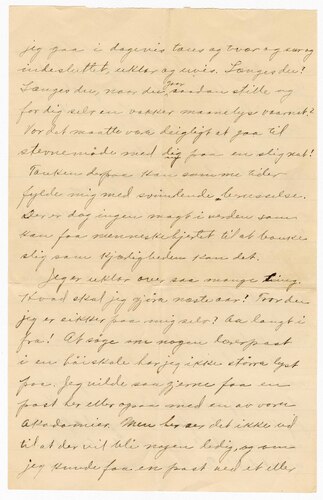 jeg gaa i dagevis taus og tvær og sur og
indesluttet, uklar og uvis. Længes du?
Længes du, naar du gaar saadan stille og
for dig selv en vakker maanelys vaarnat?
Vor det maatte være deiligt at gaa til
stevnemøde med dig paa en slig nat!
Tanken derpaa kan somme tider
fylde mig med svimlende beruselse.
Der er dog ingen magt i verden som
kan faa menneskehjertet til at banke
slig som kjærligheden kan det.
Jeg er uklar over saa mange ting.
Hvad skal jeg gjøre næste aar? Tror du
jeg er sikker paa mig selv? Aa langt i
fra! At søge om nogen lærerpost
i en høiskole har jeg ikke større lyst
paa. Jeg vilde saa gjerne faa en
post her eller ogsaa ved en av vore
Akademier. Men her ser det ikke ud
til at der vil bli nogen ledig, og om
jeg kunde faa en post ved et eller